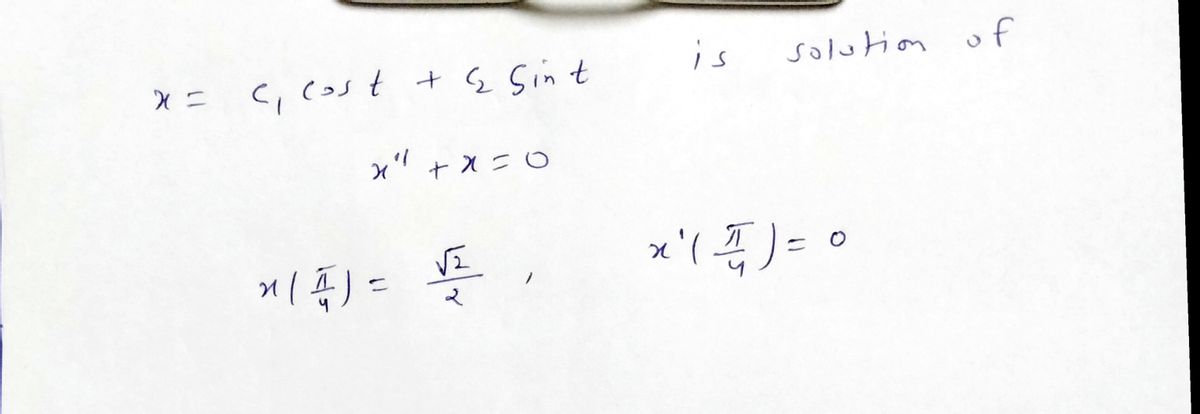 x = c₁ cos t + c₂ sin t is solution of
x'' + x = 0
x(π/4) = √2/2 , x'(π/4) = 0